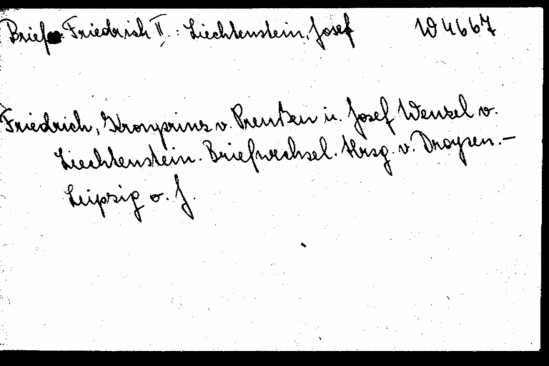 Brief Friedrich II.: Liechtenstein, Josef W 4667
Friedrich, Kronprinz v. Preußen u. Josef Wenzel v.
Liechtenstein. Briefwechsel. Hrsg. v. Droysen.-
Leipzig o. J.